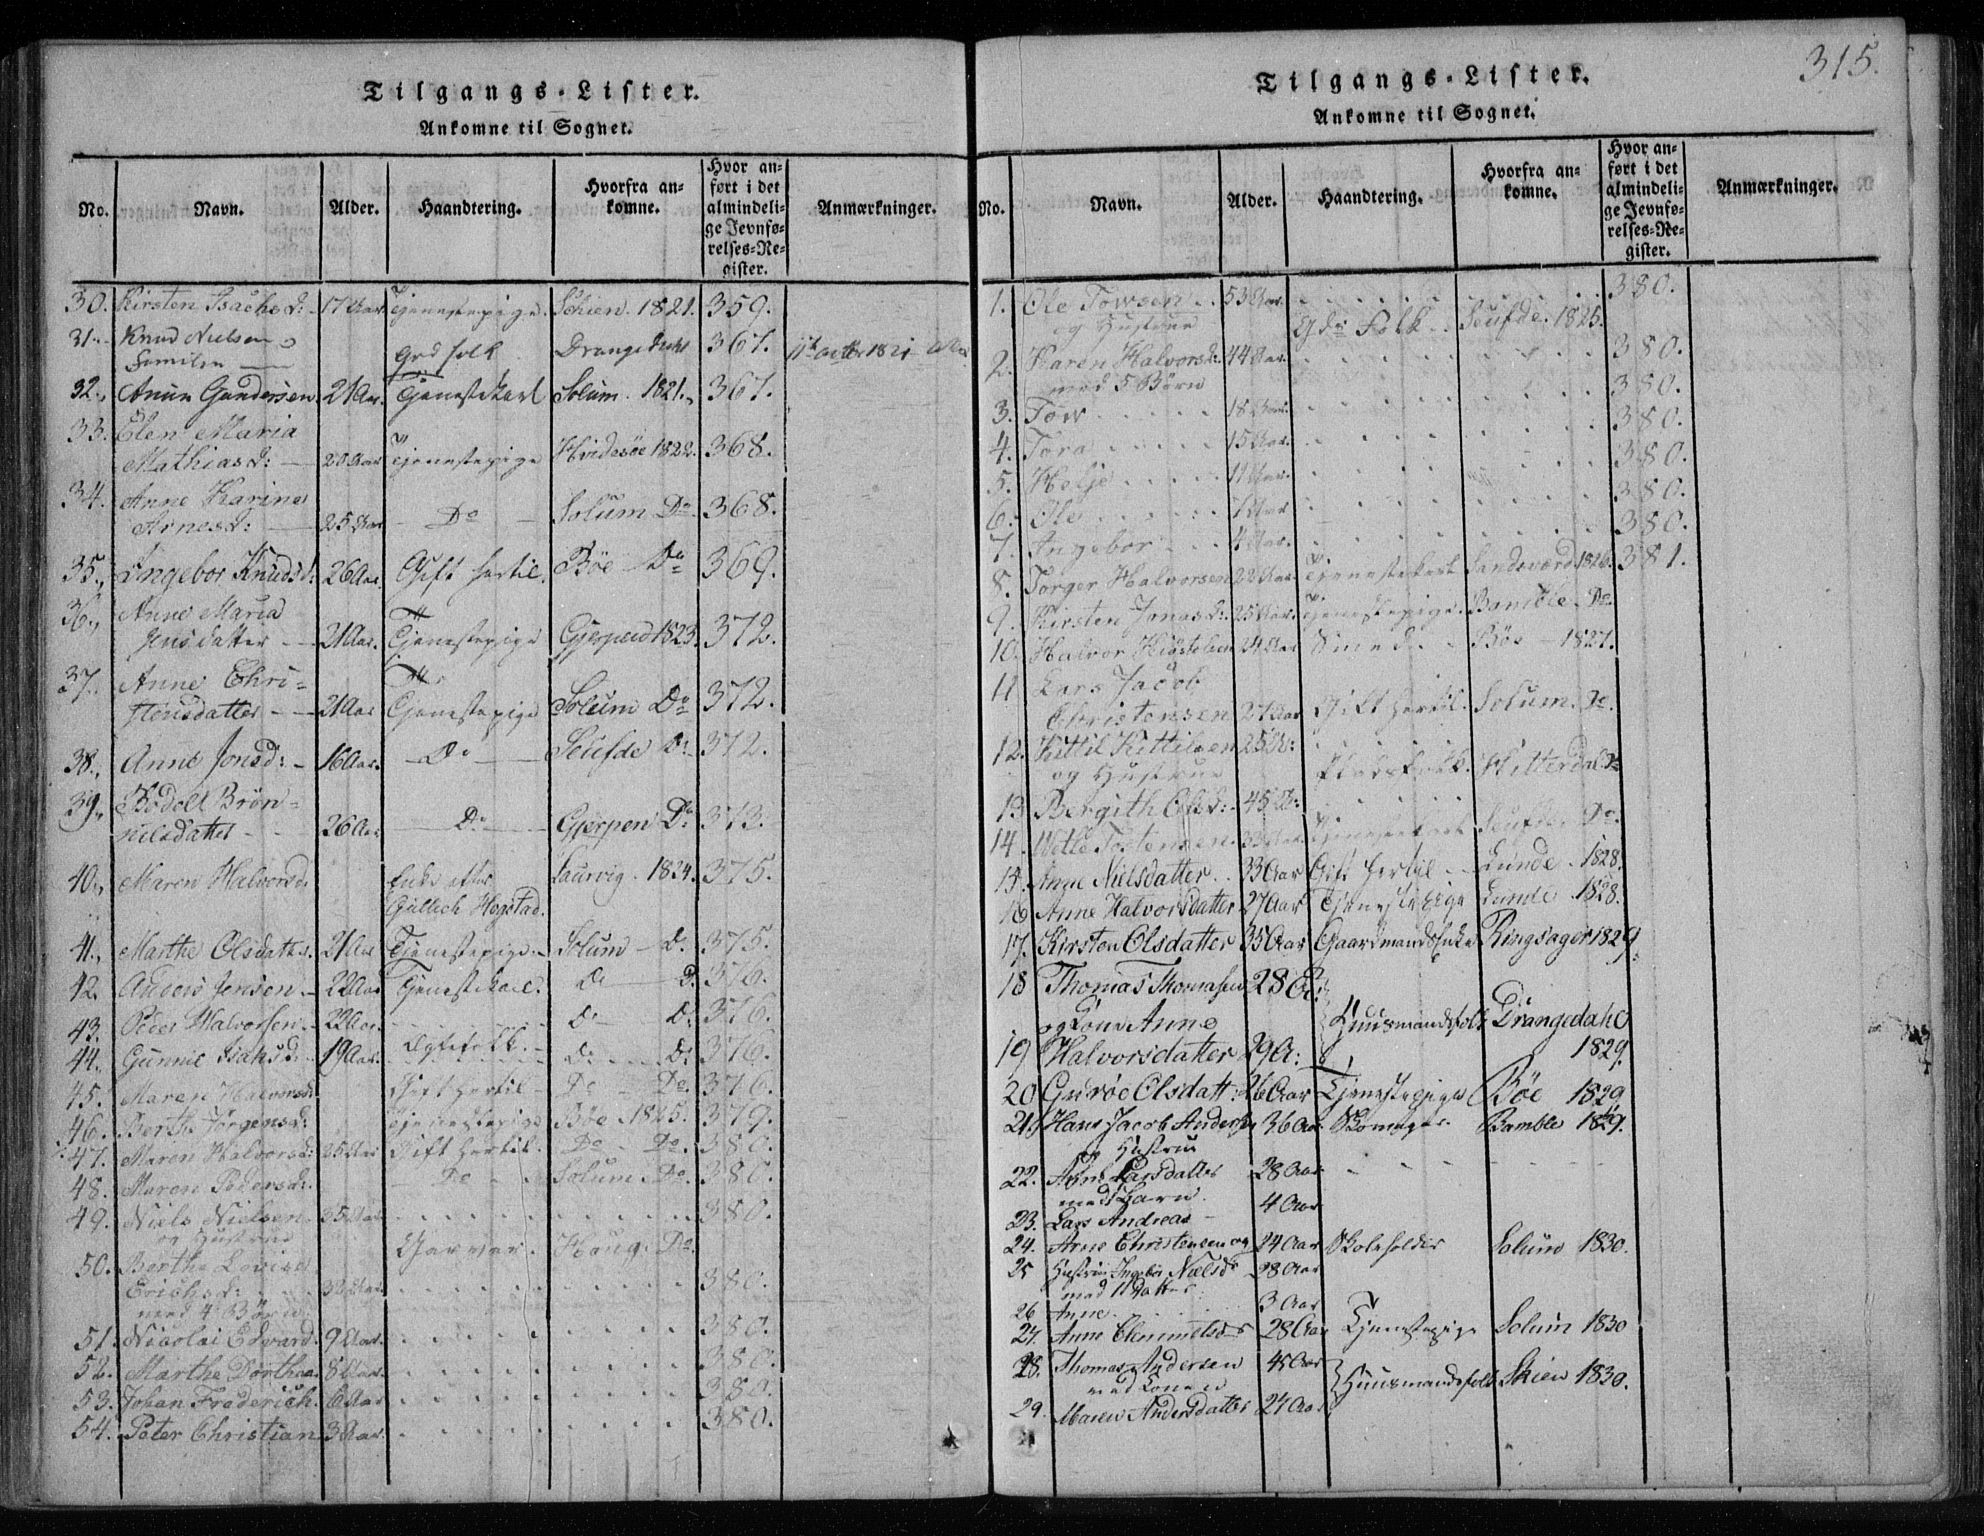 Tilgangs-Lister.
Ankomne til Sognet.
No. Navn. Alder. Haandtering. Hvorfra ankomne. Hvor anført i det almindelige Jevnførelses-Register. Anmærkninger.
30. Kirsten Isachsd: 17 Aar Tjenestepige. Schien. 1821. 359.
31. Knud Nielsen
Familen Grd folk Drangedahl 367.
32. Anun Gundersen 21 Aar. Tjenestekarl Solum. 1821. 367.
33. Elen Maria
Mathiasd: 20 Aar Tjenestepige Hvidesøe 1822. 368.
34. Anne Karine
Arnesd: 25 Aar Do Solum Do 368.
35. Ingebor Knudsd: 26 Aar. Gift hertil. Bøe Do 369.
36. Anne Maria
Jensdatter 21 Aar. Tjenestepige Gjerpen 1823. 372.
37. Anne Chri-
stensdatter 21 Aar Tjenestepige Solum Do 372.
38. Anne Jonsd: 16 Aar. Do Seufde Do 372.
39. Bodell Brøn-
nilsdatter 26 Aar Do Gjerpen Do 373.
40. Maren Halvorsd. Enke efter Laurvig. 1824. 375.
Gullich Hogstad.
41. Marthe Olsdatter. 21 Aar Tjenestepige. Solum Do. 375.
42. Anders Jensen 22 Aar Tjenestekarl. Do Do. 376.
43. Peder Halvorsen 22 Aar. Do Do. 376.
Egtefolk.
44. Gunnil Isachsd: 19 Aar. Do Do. 376.
45. Maren Halvorsd: Gift hertil Do Do. 376.
46. Berth Jørgensd: Tjenestepige Bøe 1825. 379.
47. Maren Halvorsd: 25 Aar Gift hertil. Do Do. 380.
48. Maren Pedersd: Do Solum Do. 380.
49. Niels Nielsen 35 Aar 380.
og Hustrue Garver. Houg. Do.
50. Berthe Lovise
Erichsd: 32 Aar. 380.
med 4 Børn
51. Nicolai Edvard. 9 Aar. 380.
52. Marthe Dorthea. 8 Aar. 380.
53. Johan Frederich. 6 Aar 380.
54. Peter Christian 3 Aar. 380.
315.
Tilgangs-Lister.
Ankomne til Sognet.
No. Navn. Alder. Haandtering. Hvorfra ankomne. Hvor anført i det almindelige Jevnførelses-Register. Anmærkninger.
1. Ole Towsen 53 Aar. 380.
og Hustrue Gds Folk Seufde. 1825.
2. Karen Halvorsd: 44 Aar. 380.
med 5 Børn
3. Tow 18 Aar. 380.
4. Tora 15 Aar. 380.
5. Helje 11 Aar. 380.
6. Ole 7 Aar 380.
7. Ingebor 4 Aar. 380.
8. Torger Halvorsen 22 Aar. Tjenestekarl Sandsverd 1826. 381.
9. Kirsten Jonasd: 25 Aar. Tjenestepige. Bamble Do.
10. Halvor 24 Aar Smed. Bøe 1827.
11 Lars Jacob
Christensen 27 Aar Gift hertil. Solum. Do.
12. Kittil Kittilsen 25 Ar:
og Hustrue Pladsfolk. Hitterdal Do
13 Bergith Olsd: 45 Ar:
14. Wetle Tostensen. 33 Aar Tjenestekarl Seufde Do.
15. Anne Nielsdatter 33 Aar Gift hertil Lunde. 1828.
16 Anne Halvorsdatter 27 Aar Tjenestepige Lunde 1828.
17. Kirsten Olsdatter 35 Aar Gaardmandsenke Ringsager 1829.
18 Thomas Thomasen 28 A:
og Kone Anne Huusmandsfolk Drangedahl
19 Halvorsdatter 29 A: 1829.
20 Guroe Olsdatt: 26 Aar Tjenestepige Bøe 1829
21 Hans Jacob Anders. 36 Aar. Skomager Bamble 1829.
og Hustrue
22. Larsdatter 28 Aar
med Barn.
23. Lars Andreas 4 Aar
24. Arne Christensen og 24 Aar Skoleholder Solum 1830.
25 Hustrue Ingebor Nielsdr 28 Aar
med 1 Datter
26 Anne 3 Aar
27. Anne Clemmetsdr 28 Aar Tjenestepige Solum 1830
28. Thomas Andersen 45 Aar
med Konen Huusmandsfolk Skien 1830.
29. Maren Andersdatter 24 Aar